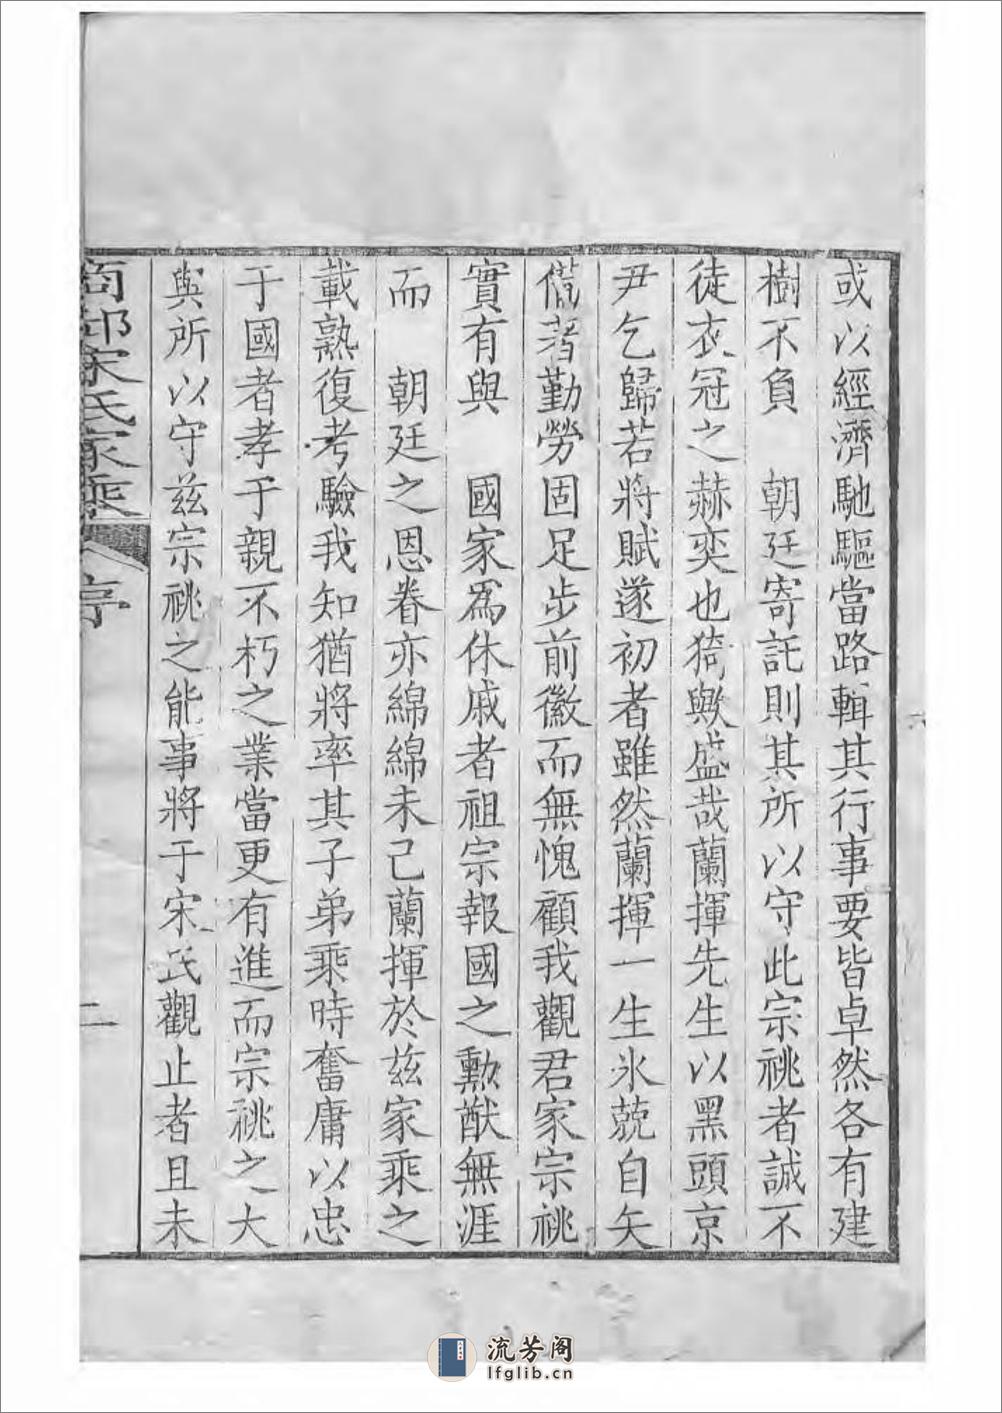 或以經濟馳驅當路輯其行事要皆卓然各有建
樹不負　朝廷寄託則其所以守此宗祧者誠不
徒衣冠之赫奕也猗歟盛哉蘭揮先生以黑頭京
尹乞歸若將賦遂初者雖然蘭揮一生氷兢自矢
儹著勤勞固足步前徽而無愧顧我觀君家宗祧
實有與　國家爲休戚者祖宗報國之勲猷無涯
而　朝廷之恩眷亦綿綿未已蘭揮於兹家乘之
載熟復考驗我知猶將率其子弟乘時奮庸以忠
于國者孝于親不朽之業當更有進而宗祧之大
與所以守兹宗祧之能事將于宋氏觀止者且未
商邱宋氏家乘
序
二
流芳阁
lfglib.cn